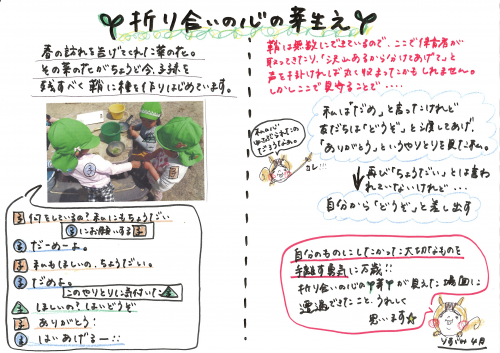 折り合いの心の芽生え
春の訪れを告げてくれた菜の花。
その菜の花がちょうど今、子孫を
残すべく鞘に種を作りはじめています。
何をしているの？私にもちょうだい
にお願いする
だめーよ。
私もほしいの、ちょうだい。
だめよ。
このやりとりに気付いた
ほしいの？はいどうぞ
ありがとう！
はい あげるー！！
鞘は無数にできているので、ここで保育者が
取ってきたり、「沢山あるから分けてあげて」と
声を掛ければ丸く収まったかもしれません。
しかしここで見守ることで・・・
私は「だめ」と言ったけれど
友だちは「どうぞ」と渡してあげ、
「ありがとう」というやりとりを見た私。
私の心
コレ…
再び「ちょうだい」とは言わ
れていないけれど・・・
自分から「どうぞ」と差し出す
自分のものにしたかった大切なものを
手離す勇気に万歳！！
折り合いの心の芽が見えた場面に
遭遇できたこと、うれしく
思います☆
4月